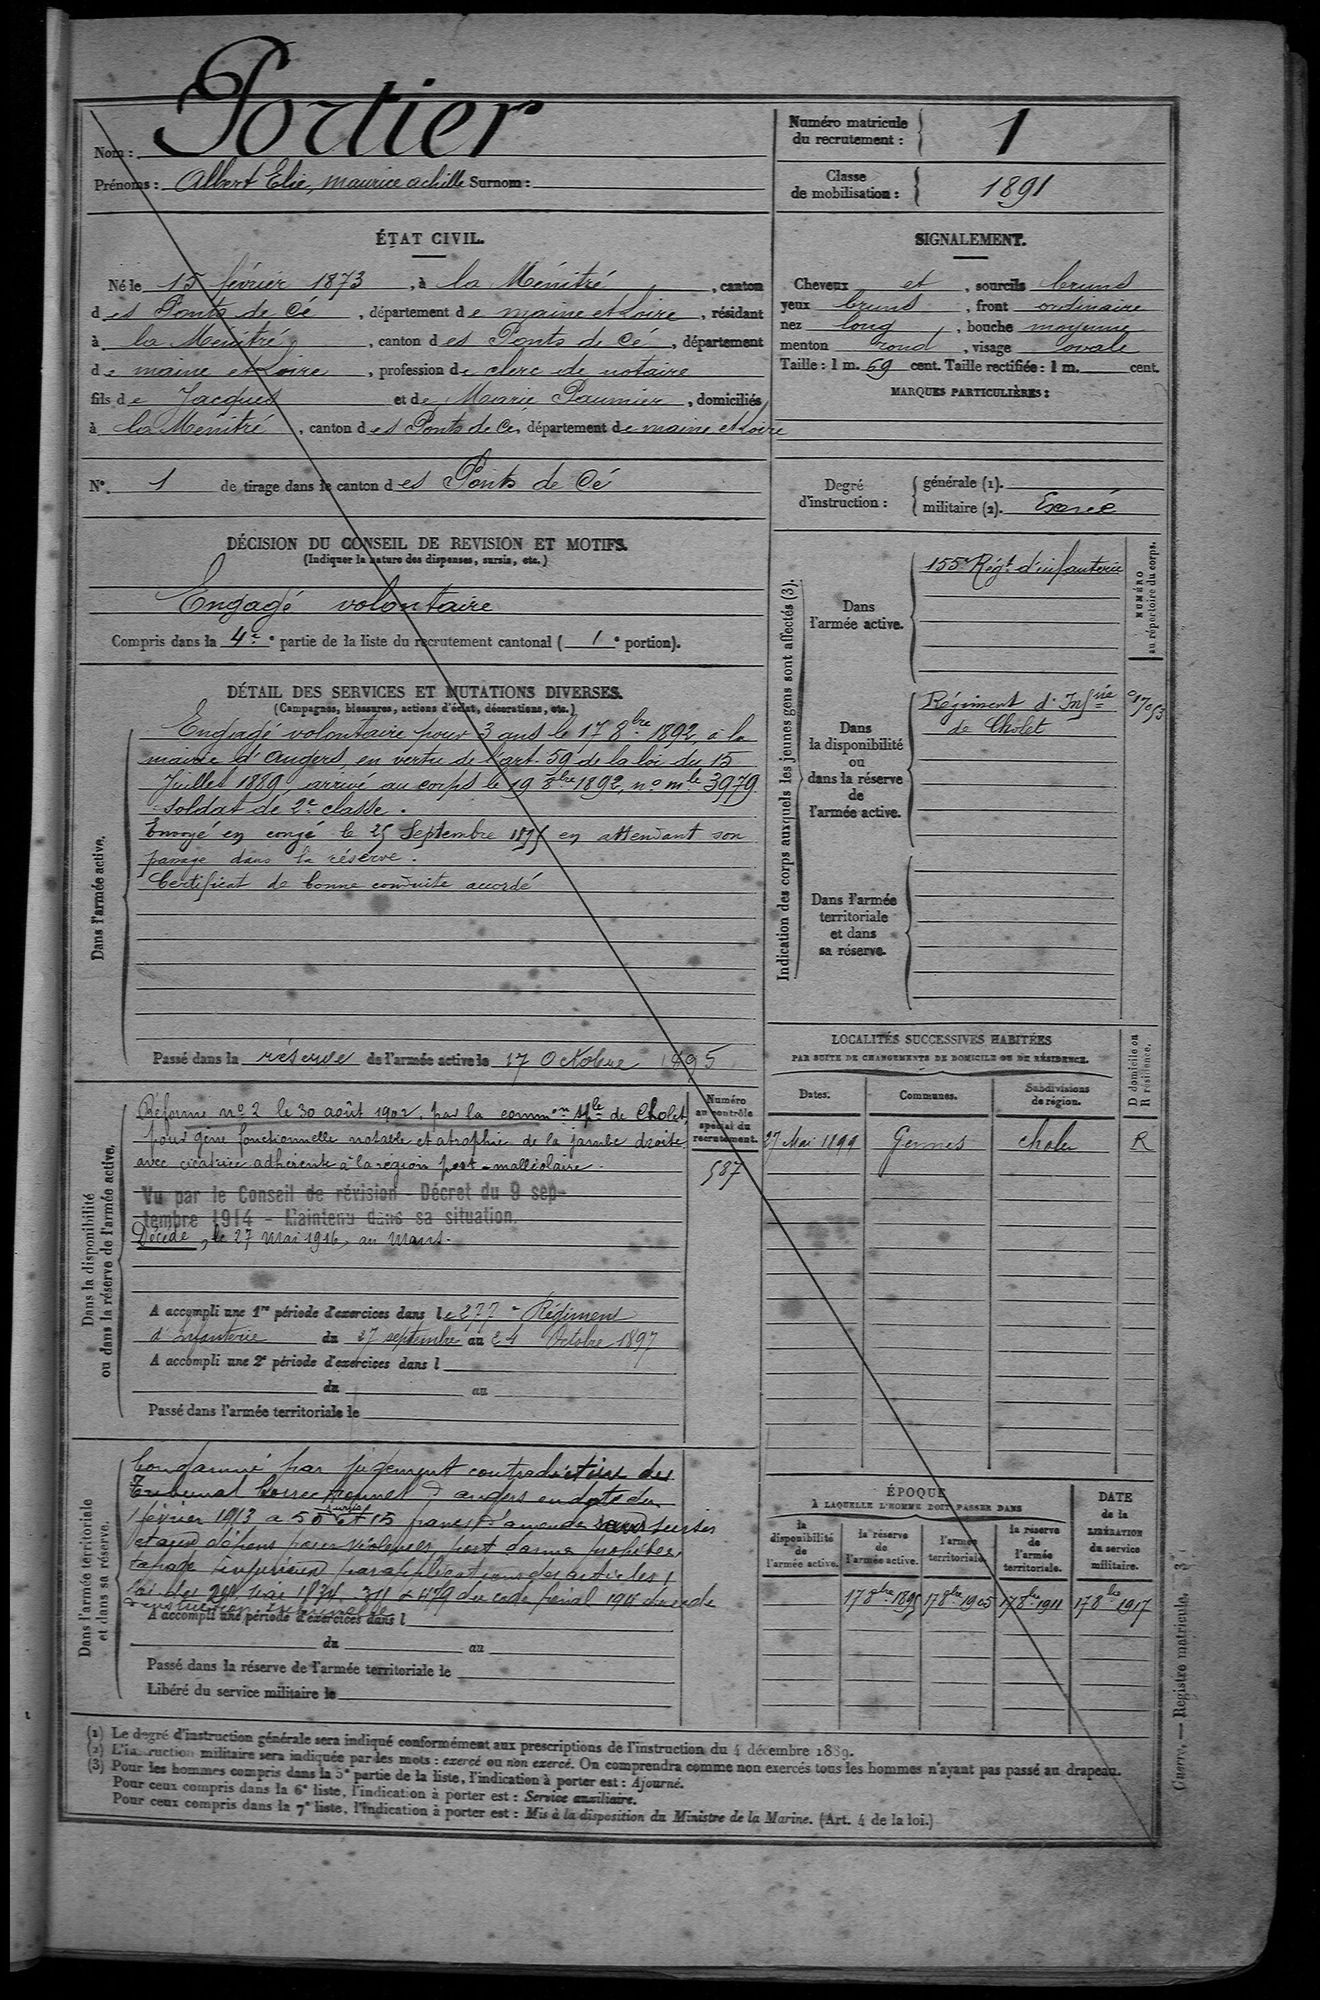 Nom : Portier
Prénoms : Albert Elie, maurice achille Surnom :
Numéro matricule du recrutement : 1
Classe de mobilisation : 1891
ÉTAT CIVIL.
Né le 15 février 1873, à la Ménitré, canton
des Ponts de Cé, département de maine et Loire, résidant
à la Ménitré, canton des Ponts de Cé, département
de maine et Loire, profession de clerc de notaire
fils de Jacques et de Marie Paumier, domiciliés
à la Ménitré, canton des Ponts de Cé, département de maine et Loire
N°. 1 de tirage dans le canton des Ponts de Cé
SIGNALEMENT.
Cheveux et, sourcils bruns
yeux bruns, front ordinaire
nez long, bouche moyenne
menton rond, visage ovale
Taille : 1 m. 69 cent. Taille rectifiée : 1 m. cent.
MARQUES PARTICULIÈRES :
Degré d'instruction :
générale (1).
militaire (2). Exercé
DÉCISION DU CONSEIL DE REVISION ET MOTIFS.
(Indiquer la nature des dispenses, sursis, etc.)
Engagé volontaire
Compris dans la 4e partie de la liste du recrutement cantonal ( 1e portion).
DÉTAIL DES SERVICES ET MUTATIONS DIVERSES.
(Campagnes, blessures, actions d'éclat, décorations, etc.)
Dans l'armée active.
Engagé volontaire pour 3 ans le 17 8bre 1892 à la
mairie d'Angers, en vertu de l'art. 59 de la loi du 15
Juillet 1889, arrivé au corps le 19 8bre 1892, no mle 3979
soldat de 2e classe.
Envoyé en congé le 25 Septembre 1895 en attendant son
passage dans la réserve.
Certificat de bonne conduite accordé
Passé dans la réserve de l'armée active le 17 Octobre 1895
Indication des corps auxquels les jeunes gens sont affectés (3).
NUMÉRO au répertoire du corps.
Dans l'armée active.
155e Régt d'infanterie
Dans la disponibilité ou dans la réserve de l'armée active.
Régiment d'Infrie
de Cholet
Dans l'armée territoriale et dans sa réserve.
LOCALITÉS SUCCESSIVES HABITÉES
PAR SUITE DE CHANGEMENTS DE DOMICILE OU DE RÉSIDENCE.
D domicile ou R résidence.
Dates. Communes. Subdivisions de région.
27 Mai 1899 Gennes Cholet R
Dans la disponibilité ou dans la réserve de l'armée active.
Numéro au contrôle spécial du recrutement.
587
Réformé no 2 le 30 août 1902 par la common sple de Cholet,
pour gêne fonctionnelle notable et atrophie de la jambe droite
avec cicatrice adhérente à la région post-malléolaire.
Vu par le Conseil de révision - Décret du 9 sep-
tembre 1914 - Maintenu dans sa situation.
Décédé, le 27 Mai 1916, au Mans.
A accompli une 1re période d'exercices dans le 277e Régiment
d'Infanterie du 27 septembre au 24 Octobre 1897
A accompli une 2e période d'exercices dans l
du au
Passé dans l'armée territoriale le
Dans l'armée territoriale et dans sa réserve.
Condamné par jugement contradictoire du
Tribunal Correctionnel d'angers en date du
1 février 1913 à 50 et 15 francs d'amende sursis
et aux dépens pour violences, port d'arme prohibée,
tapage injurieux par application des articles 1
loi du 24 Mai 1834, 311 & 479 du code pénal 194 du code
d'instruction criminelle
A accompli une période d'exercices dans l
du au
Passé dans la réserve de l'armée territoriale le
Libéré du service militaire le
ÉPOQUE
À LAQUELLE L'HOMME DOIT PASSER DANS
la disponibilité de l'armée active. la réserve de l'armée active. l'armée territoriale. la réserve de l'armée territoriale.
DATE de la LIBÉRATION du service militaire.
17 8bre 1895 17 8bre 1905 17 8bre 1911 17 8bre 1917
(1) Le degré d'instruction générale sera indiqué conformément aux prescriptions de l'instruction du 4 décembre 1889.
(2) L'instruction militaire sera indiquée par les mots : exercé ou non exercé. On comprendra comme non exercés tous les hommes n'ayant pas passé au drapeau.
(3) Pour les hommes compris dans la 5e partie de la liste, l'indication à porter est : Ajourné.
Pour ceux compris dans la 6e liste, l'indication à porter est : Service auxiliaire.
Pour ceux compris dans la 7e liste, l'indication à porter est : Mis à la disposition du Ministre de la Marine. (Art. 4 de la loi.)
Guerre. — Registre matricule. 3